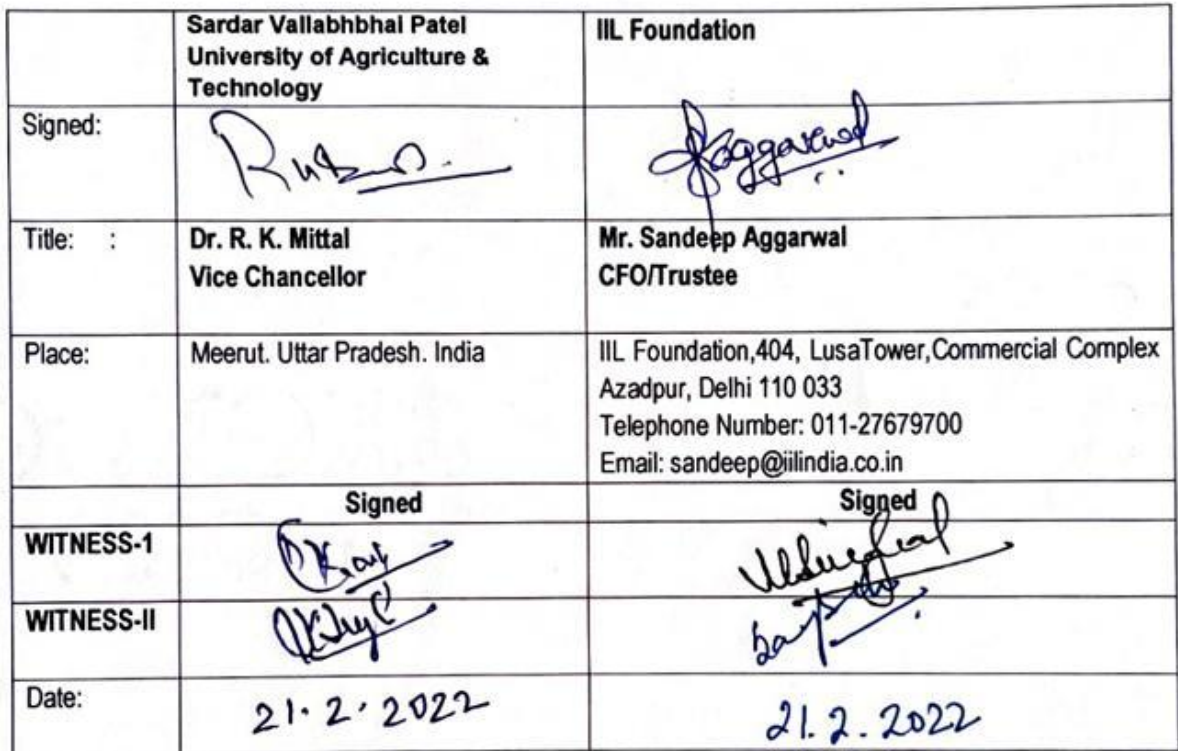 Sardar Vallabhbhai Patel
University of Agriculture &
Technology
IIL Foundation
Signed:
Aggarwal
Title: :
Dr. R. K. Mittal
Vice Chancellor
Mr. Sandeep Aggarwal
CFO/Trustee
Place:
Meerut. Uttar Pradesh. India
IIL Foundation,404, LusaTower,Commercial Complex
Azadpur, Delhi 110 033
Telephone Number: 011-27679700
Email: sandeep@iilindia.co.in
Signed
Signed
WITNESS-1
WITNESS-II
Date:
21.2.2022
21.2.2022